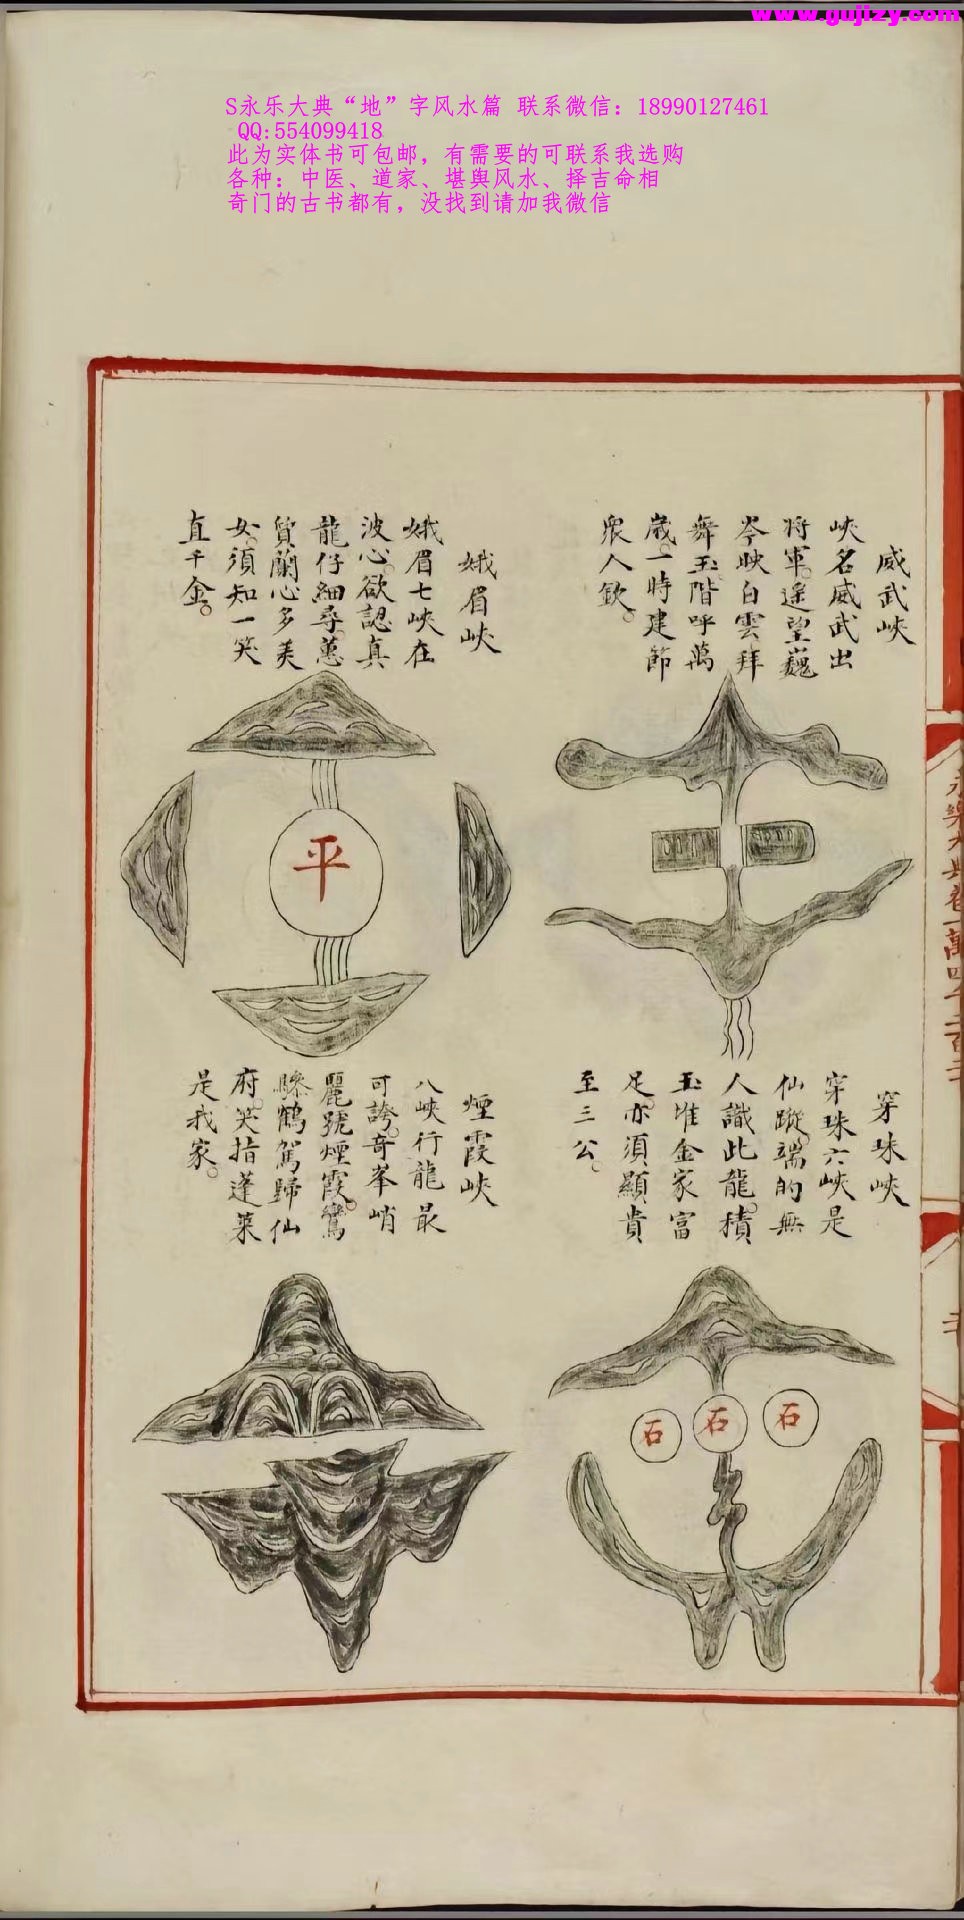 www.gujizy.com
S永乐大典“地”字风水篇 联系微信：18990127461
QQ:554099418
此为实体书可包邮，有需要的可联系我选购
各种：中医、道家、堪舆风水、择吉命相
奇门的古书都有，没找到请加我微信
威武峽
峽名威武出
将軍。遥望巍
岑映白雲。拜
舞玉階呼萬
歲。一時建節
眾人欽。
娥眉峽
娥眉七峽在
波心。欲認真
龍仔細尋。蕙
質蘭心多美
女。須知一笑
直千金。
平
穿珠峽
穿珠六峽是
仙蹤。端的無
人識此龍。積
玉堆金家富
足。亦須顯貴
至三公。
石
石
石
煙霞峽
八峽行龍最
可誇。奇峯峭
麗號煙霞。鸞
驂鶴駕歸仙
府。笑指蓬萊
是我家。
永樂大典卷一萬四千二百二十